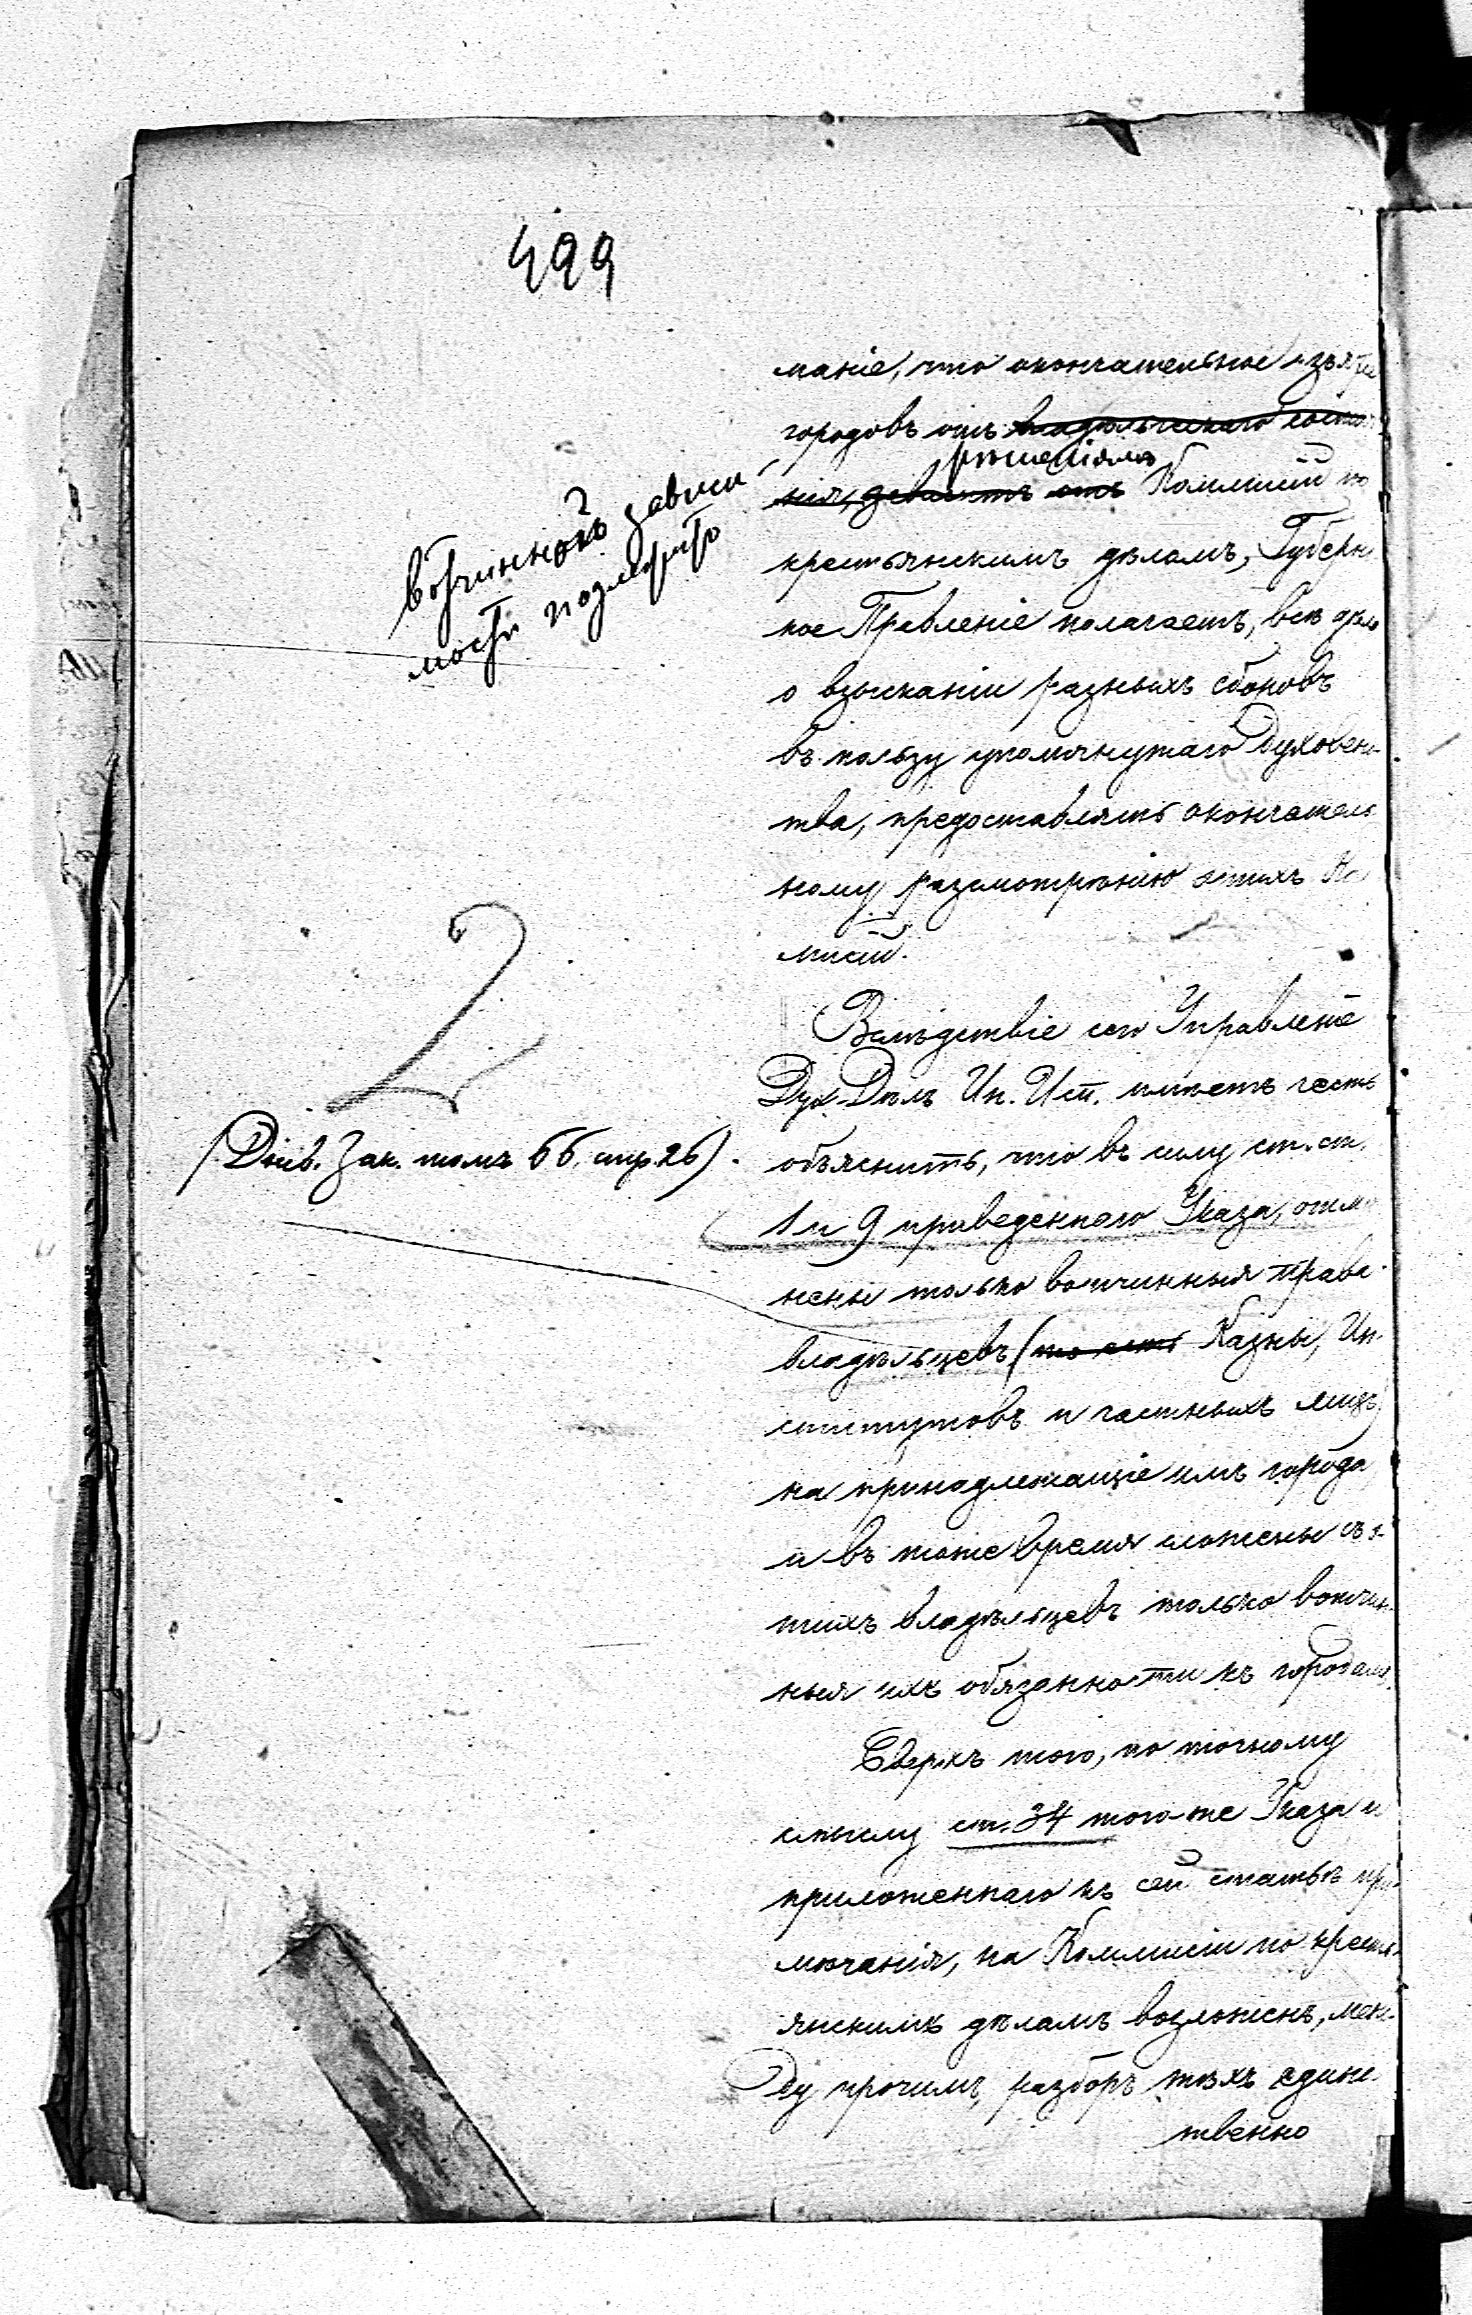 499
маніе, что окончательное изъятіе
городовъ отъ владѣльческаго состоя
нія, зависитъ отъ Коммисій по
рѣшеніямъ
крестьянскимъ дѣламъ, Губерн
ское Правленіе полагаетъ, всѣ дѣла
о взысканіи разныхъ сборовъ
въ пользу упомянутаго Духовенс
тва, предоставлять окончатель
ному разсмотрѣнію этихъ Ко
мисій.
вотчинной зависи
мости
2
Вслѣдствіе сего Управленіе
Дух. Дѣлъ Ин. Исп. имѣетъ честь
объяснить, что въ силу ст. ст.
(Днев. Зак. томъ 66. стр. 26).
1 и 9 приведеннаго Указа, отмѣ
нены только вотчинныя права
владѣльцевъ (то есть Казны, Ин
ститутовъ и частныхъ лицъ)
на принадлежащіе имъ города
и въ тоже время сложены съ э
тихъ владѣльцевъ только вотчин
ныя ихъ обязанности къ городамъ.
Сверхъ того, по точному
смыслу ст. 34 того-же Указа и
приложеннаго къ сей статьѣ при
мѣчанія, на Коммисіи по кресть
янскимъ дѣламъ возложенъ, меж
ду прочимъ, разборъ тѣхъ единс
твенно